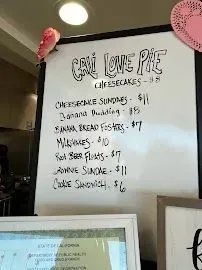 Cali Love Pie
CHEESECAKES - $8
CHEESECAKE SUNDAES - $11
Banana Pudding - $8
BANANA BREAD FOSTERS - $7
MILKSHAKES - $10
Root BEER FLOATS - $7
BROWNIE SUNDAE - $11
COOKIE SANDWICH - $6
STATE OF CALIFORNIA
DEPARTMENT OF PUBLIC HEALTH